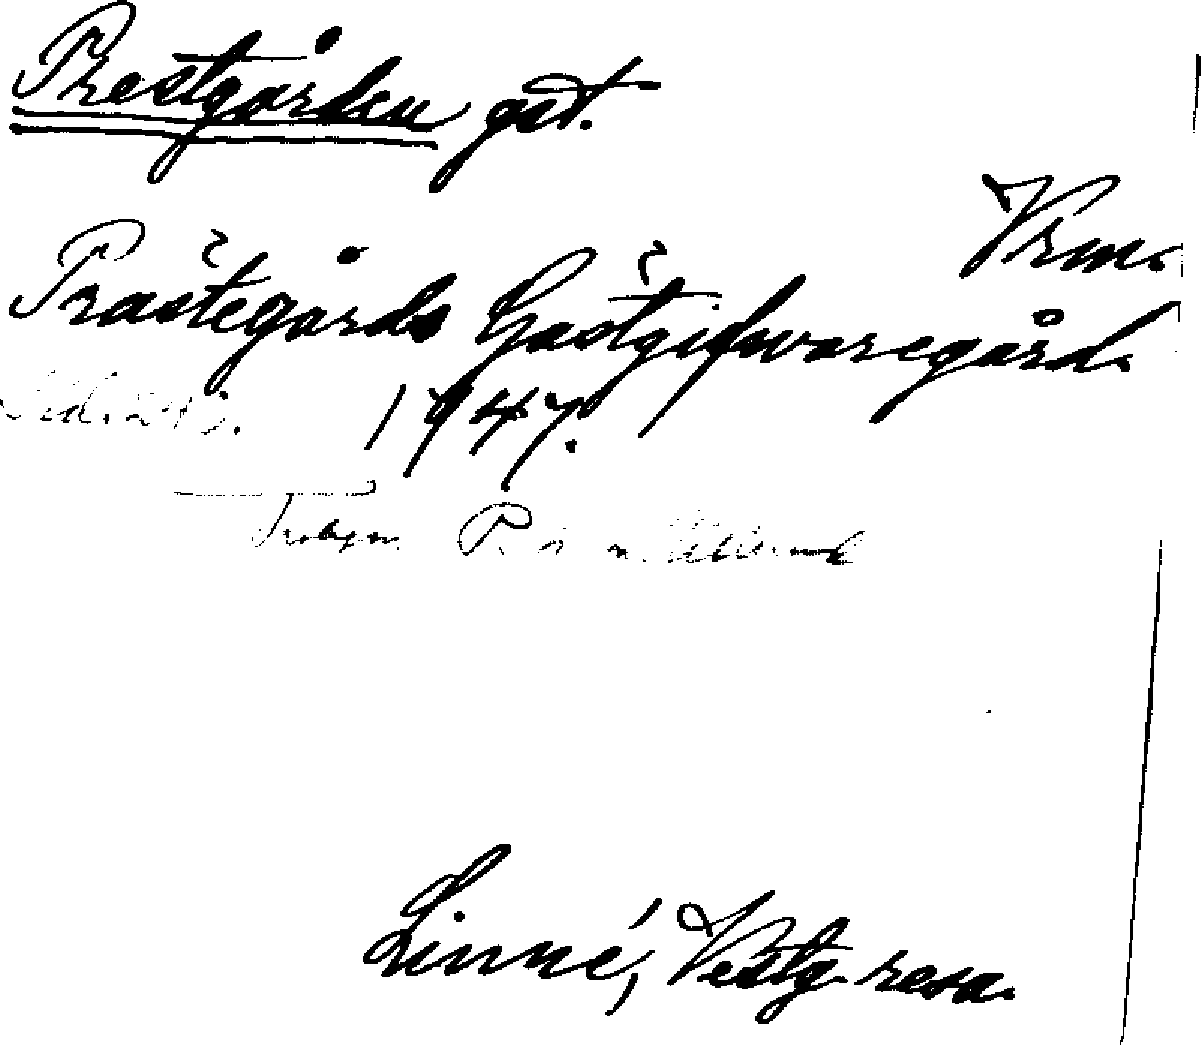 Prestgården gst.
Vrm.
Prästegårds Gästgifwaregård.
Sid. 243.
1747.
Linné, Vestg. resa.